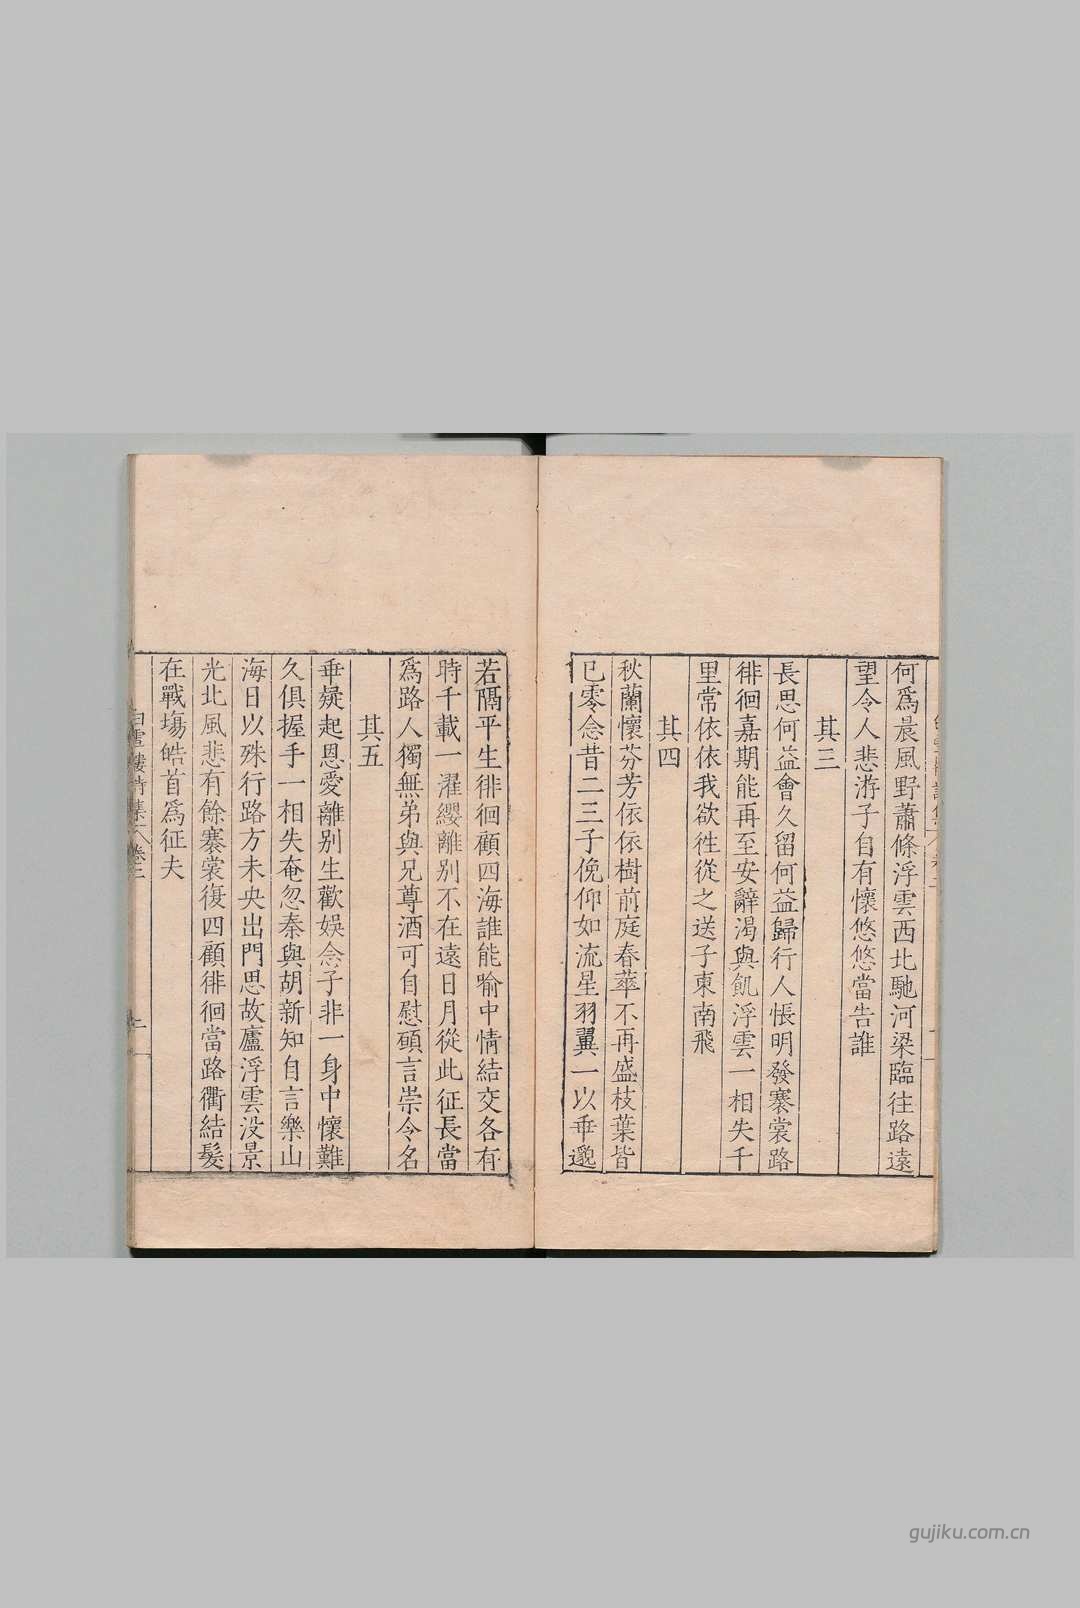 何爲晨風野蕭條浮雲西北馳河梁臨往路遠
望令人悲游子自有懷悠悠當告誰
其三
長思何益會久留何益歸行人悵明發褰裳路
徘徊嘉期能再至安辭渴與飢浮雲一相失千
里常依依我欲徃從之送子東南飛
其四
秋蘭懷芬芳依依樹前庭春華不再盛枝葉皆
已零念昔二三子俛仰如流星羽翼一以乖邈
若隔平生徘徊顧四海誰能喻中情結交各有
時千載一濯纓離別不在遠日月從此征長當
爲路人獨無弟與兄尊酒可自慰願言崇令名
其五
乖疑起恩愛離別生歡娛念子非一身中懷難
久俱握手一相失奄忽秦與胡新知自言樂山
海日以殊行路方未央出門思故廬浮雲沒景
光北風悲有餘褰裳復四顧徘徊當路衢結髮
在戰場皓首爲征夫
白雪樓詩集 卷二
二
gujiku.com.cn